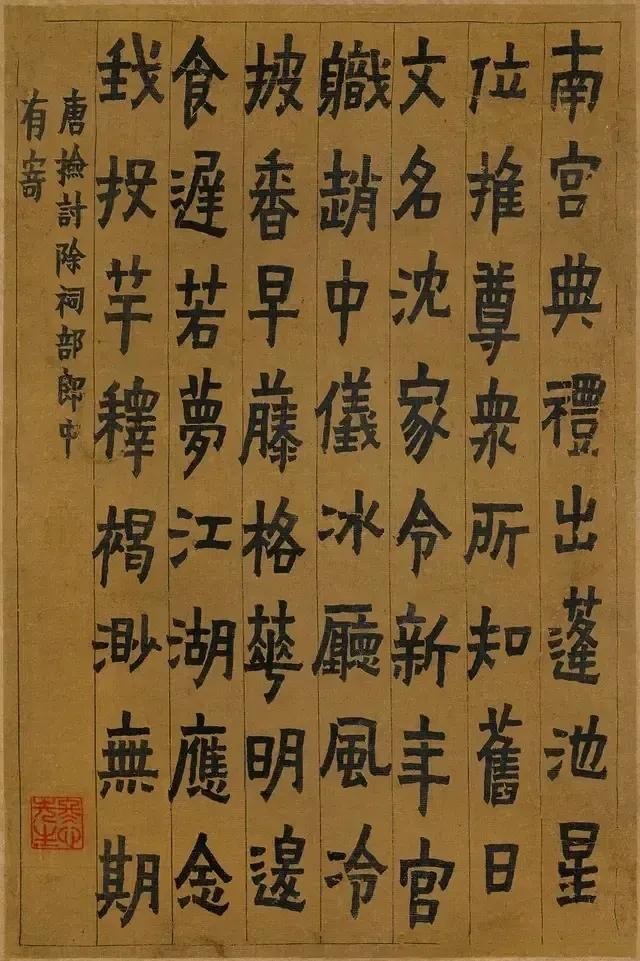 南宮典禮出蓬池星
位推尊衆所知舊日
文名沈家令新年官
軄趙中儀冰廳風冷
披香早藤格華明邊
食遲若夢江湖應念
我投竿釋褐渺無期
唐撿討除祠部郎中
有寄
冬心先生